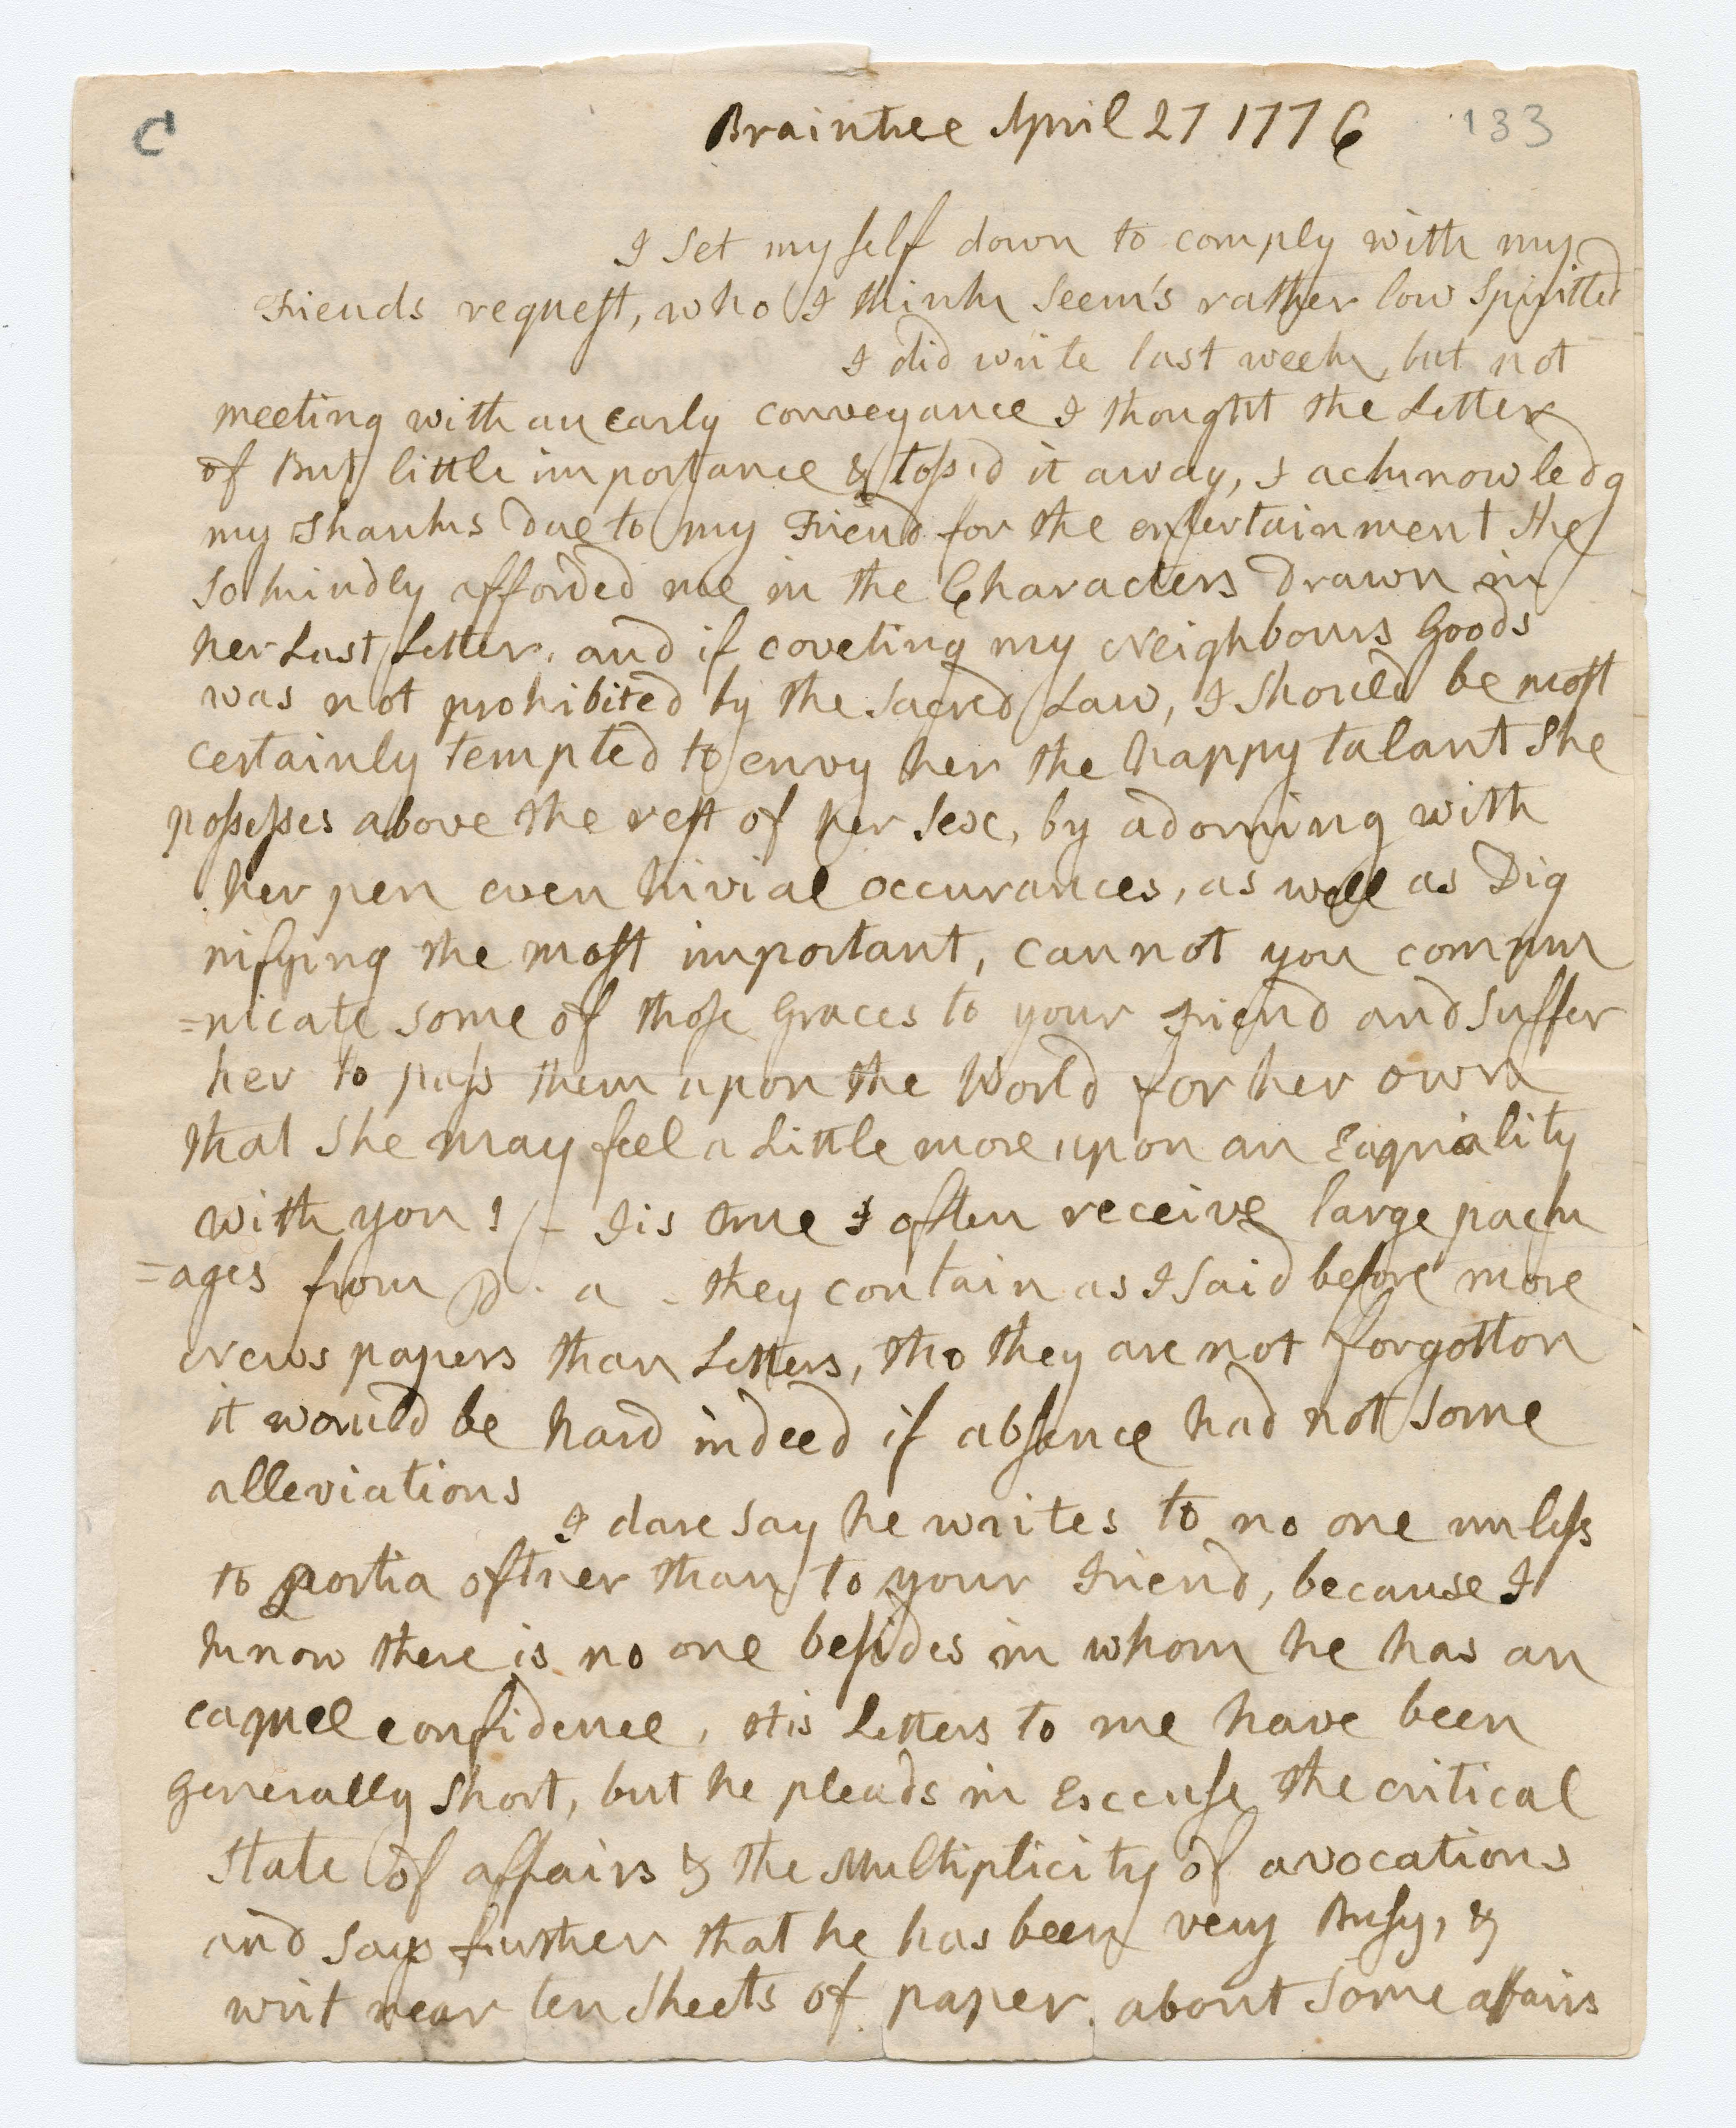 C
Braintree April 27 1776
133
I set myself down to comply with my
Friends request, who I think seem's rather low spiritted
I did write last week, but not
meeting with an early conveyance I thought the Letter
of But little importance & tossd it away, I acknowledg
my Thanks due to my Friend for the entertainment she
so kindly afforded me in the Characters Drawn in
her Last Letter, and if coveting my Neighbours Goods
was not prohibited by the Sacred Law, I should be most
certainly tempted to envy her the happy talant she
possesses above the rest of her Sex, by adorning with
her pen even trivial occurances, as well as Dig
nifying the most important, cannot you commu
=nicate some of those Graces to your Friend and suffer
her to pass them upon the World for her own
that she may feel a Little more upon an Eaquality
with you? – Tis true I often receive large pack
=ages from P. a – they contain as I said before more
News papers than Letters, tho they are not forgotton
it would be hard indeed if absence had not some
alleviations
I dare say he writes to no one unless
to Portia oftner than to your Friend, because I
know there is no one besides in whom he has an
eaquel confidence, His Letters to me have been
generally short, but he pleads in Excuse the critical
state of affairs & the Multiplicity of avocations
and says further that he has been very Busy, &
writ near ten Sheets of paper, about some affairs